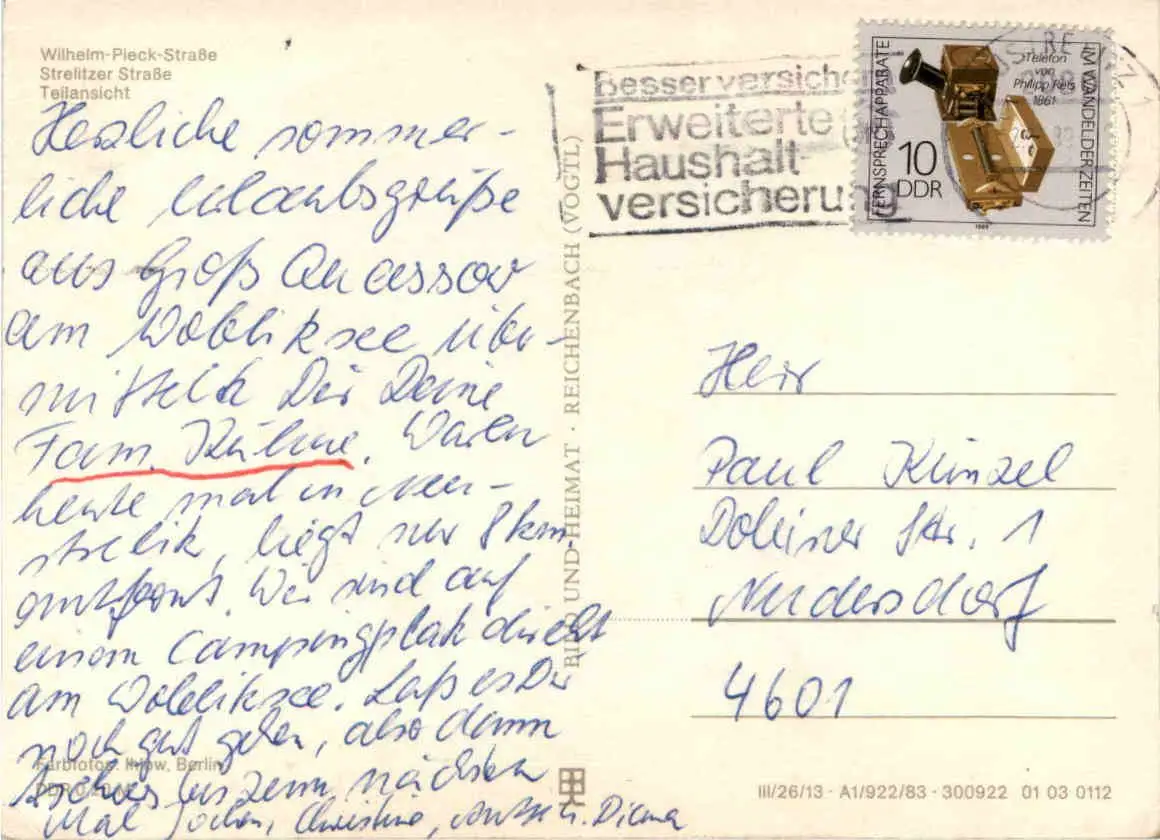 Wilhelm-Pieck-Straße
Strelitzer Straße
Teilansicht
Herzliche sommer-
liche Urlaubsgrüße
aus Groß Quassow
am Wobliksee über-
mitteln Dir Deine
Fam. Kühne. Waren
heute mal in Neu-
strelitz, liegt nur 8 km
entfernt. Wir sind auf
einem Campingplatz direkt
am Wobliksee. Laß es Dir
noch gut gehen, also dann
bis zum nächsten
Mal Jochen, Christine, u. Diana
Farbfotos: Ihlow, Berlin
DDR 0,20 M
BILD UND HEIMAT · REICHENBACH (VOGTL)
Besser versichert
Erweiterte
Haushalt-
versicherung
FERNSPRECHAPPARATE
IM WANDEL DER ZEITEN
Telefon
von
Philipp Reis
1861
10
DDR
1989
Herr
Paul Künzel
Str. 1
Nudersdorf
4601
III/26/13 · A1/922/83 · 300922 01 03 0112